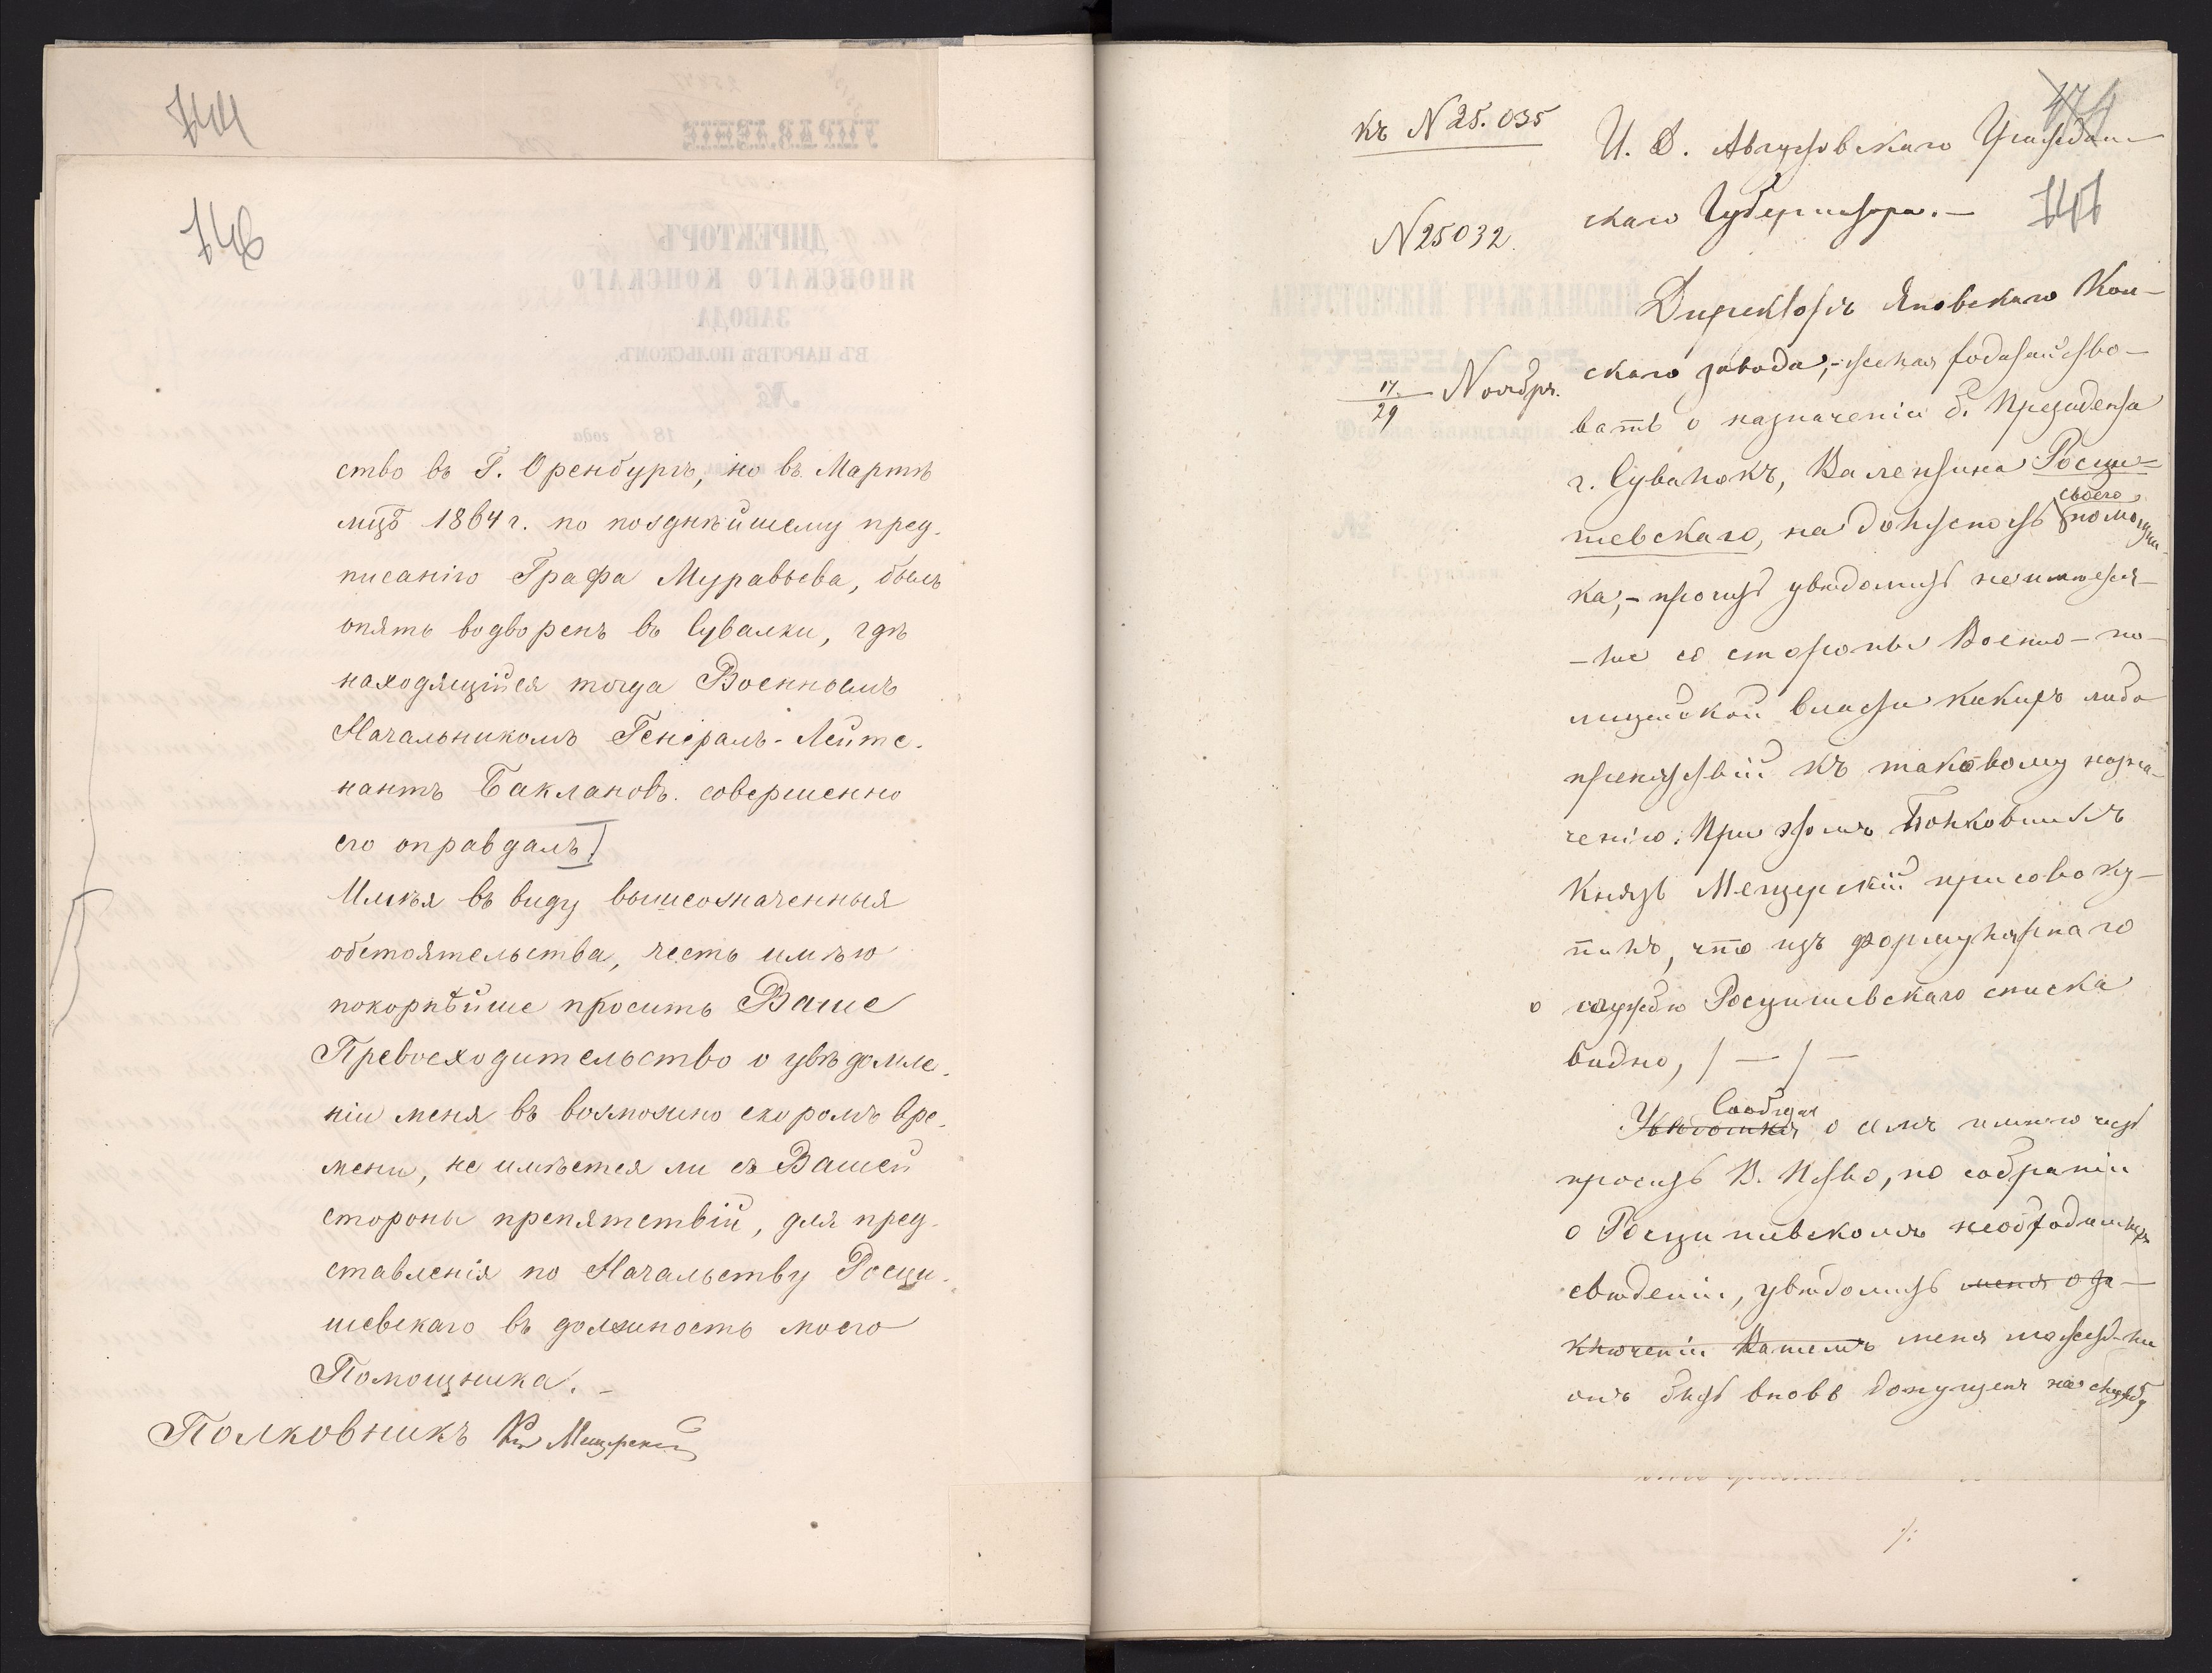 744
746
ство въ Г. Оренбургъ, но въ Мартѣ
мцѣ 1864 г. по позднѣйшему пред-
писанію Графа Муравьева, былъ
опять водворенъ въ Сувалки, гдѣ
находящійся тогда Военнымъ
Начальникомъ Генералъ-Лейте-
нантъ Баклановъ. совершенно
его оправдалъ.
Имѣя въ виду вышеозначенныя
обстоятельства, честь имѣю
покорнѣйше просить Ваше
Превосходительство о увѣдомле-
ніи меня въ возможно скоромъ вре-
мени, не имѣется ли съ Вашей
стороны препятствій, для пред-
ставленія по Начальству Росци-
шевскаго въ должность моего
Помощника. –
Полковникъ Кн Мещерскій
къ N 25.035
N 25032.
17/29 Ноябр.
747
И. Д. Августовскаго Граждан-
скаго Губернатора. –
Директоръ Яновскаго Кон-
скаго завода, – желая ходатайство-
вать о назначеніи б. Президента
г. Сувалокъ, Валентина Росци-
шевскаго, на должность своего помощни-
ка, – проситъ увѣдомить не имѣется-
-ли со стороны Военно-по-
лицейской власти какихъ либо
препятствій къ таковому назна-
ченію. При этомъ Полковникъ
Князь Мещерскій присовоку-
пилъ, что изъ формулярнаго
о службѣ Росцишевскаго списка
видно, / — / —
Увѣдомляя Сообщая о семъ имѣю честь
просить В. П-ство, по собраніи
о Росцишевскомъ необходимыхъ
свѣденіи, увѣдомить меня о за-
ключеніи Вашемъ меня можетъ-ли
онъ быть вновь допущенъ на службу